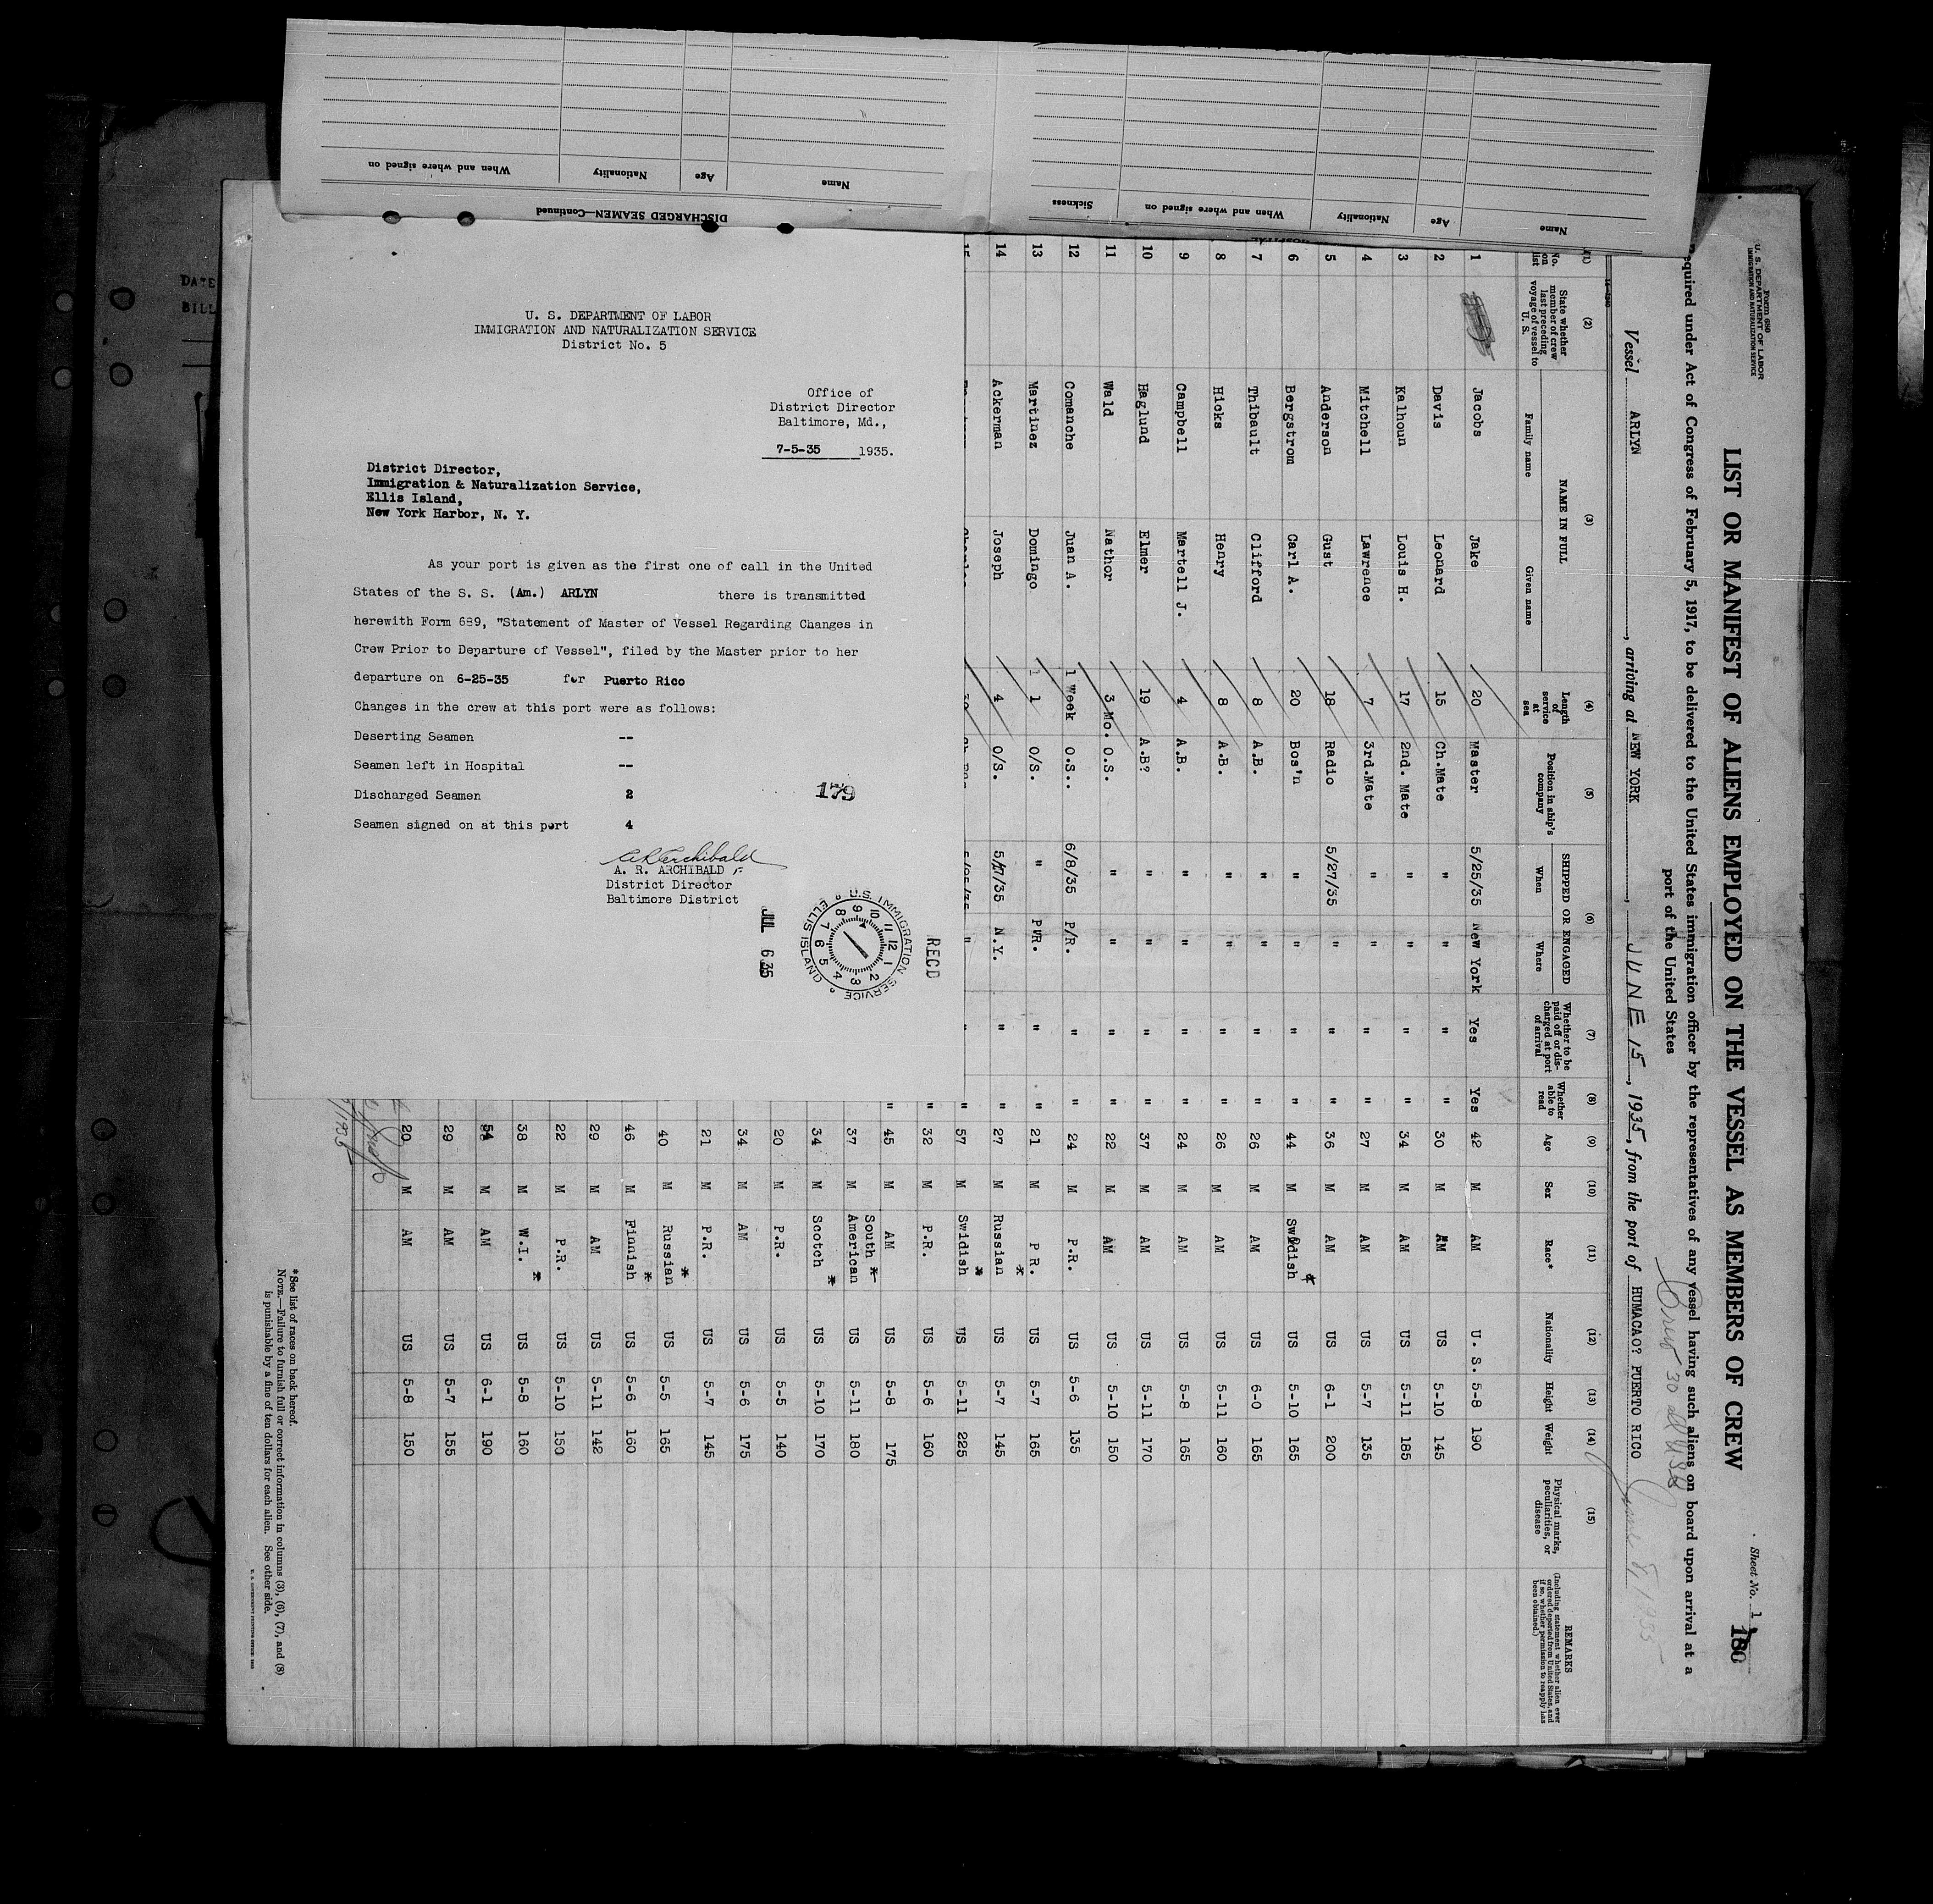 When and where signed on
Nationality
Age
Name
DISCHARGED SEAMEN—Continued
Sickness
When and where signed on
Nationality
Age
Name
DATE
BILL
U. S. DEPARTMENT OF LABOR
IMMIGRATION AND NATURALIZATION SERVICE
District No. 5
Office of
District Director
Baltimore, Md.,
7-5-35 1935.
District Director,
Immigration & Naturalization Service,
Ellis Island,
New York Harbor, N. Y.
As your port is given as the first one of call in the United
States of the S. S. (Am.) ARLYN there is transmitted
herewith Form 689, "Statement of Master of Vessel Regarding Changes in
Crew Prior to Departure of Vessel", filed by the Master prior to her
departure on 6-25-35 for Puerto Rico
Changes in the crew at this port were as follows:
Deserting Seamen --
Seamen left in Hospital --
Discharged Seamen 2
179
Seamen signed on at this port 4
A. R. Archibald
A. R. ARCHIBALD
District Director
Baltimore District
JUL 6 35
U.S. IMMIGRATION SERVICE
ELLIS ISLAND
12 1 2 3 4 5 6 7 8 9 10 11
RECD
Form 680
U. S. DEPARTMENT OF LABOR
IMMIGRATION AND NATURALIZATION SERVICE
Sheet No. 1
180
LIST OR MANIFEST OF ALIENS EMPLOYED ON THE VESSEL AS MEMBERS OF CREW
required under Act of Congress of February 5, 1917, to be delivered to the United States immigration officer by the representatives of any vessel having such aliens on board upon arrival at a
port of the United States
Crew 30 all USC
Vessel ARLYN, arriving at NEW YORK, JUNE 15, 1935, from the port of HUMACAO? PUERTO RICO June 8, 1935
(1) (2) (3) (4) (5) (6) (7) (8) (9) (10) (11) (12) (13) (14) (15)
No. on list
State whether member of crew last preceding voyage of vessel to U. S.
NAME IN FULL
Family name
Given name
Length of service at sea
Position in ship's company
SHIPPED OR ENGAGED
When
Where
Whether to be paid off or discharged at port of arrival
Whether able to read
Age
Sex
Race*
Nationality
Height
Weight
Physical marks, peculiarities, or disease
REMARKS
(Including statement whether alien ever ordered deported from United States, and if so, whether permission to reapply has been obtained.)
1 Jacobs Jake 20 Master 5/25/35 New York Yes Yes 42 M AM U. S. 5-8 190
2 Davis Leonard 15 Ch.Mate " " " " 30 M AM US 5-10 145
3 Kalhoun Louis H. 17 2nd. Mate " " " " 34 M AM US 5-11 185
4 Mitchell Lawrence 7 3rd.Mate " " " " 27 M AM US 5-7 135
5 Anderson Gust 18 Radio 5/27/35 " " " 36 M AM US 6-1 200
6 Bergstrom Carl A. 20 Bos'n " " " " 44 M Swedish * US 5-10 165
7 Thibault Clifford 8 A.B. " " " " 26 M AM US 6-0 165
8 Hicks Henry 8 A.B. " " " " 26 M AM US 5-11 160
9 Campbell Martell J. 4 A.B. " " " " 24 M AM US 5-8 165
10 Haglund Elmer 19 A.B? " " " " 37 M AM US 5-11 170
11 Wald Nathor 3 Mo. O.S. " " " " 22 M AM US 5-10 150
12 Comanche Juan A. 1 Week O.S.. 6/8/35 P/R. " " 24 M P.R. US 5-6 135
13 Martinez Domingo 1 O/S. " P/R. " " 21 M P R. US 5-7 165
14 Ackerman Joseph 4 O/S. 5/17/35 N.Y. " " 27 M Russian * US 5-7 145
15 " " " 57 M Swidish * US 5-11 225
" 32 M P.R. US 5-6 160
" 45 M AM US 5-8 175
37 M South American * US 5-11 180
34 M Scotch * US 5-10 170
20 M P.R. US 5-5 140
34 M AM US 5-6 175
21 M P.R. US 5-7 145
40 M Russian * US 5-5 165
46 M Finnish * US 5-6 160
29 M AM US 5-11 142
22 M P.R. US 5-10 150
38 M W.I. * US 5-8 160
54 M AM US 6-1 190
29 M AM US 5-7 155
20 M AM US 5-8 150
*See list of races on back hereof.
NOTE.—Failure to furnish full or correct information in columns (3), (6), (7), and (8)
is punishable by a fine of ten dollars for each alien. See other side.